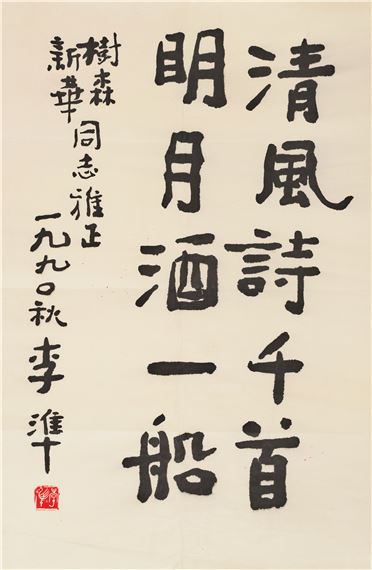 清風詩千首
明月酒一船
樹森
新華
同志雅正
一九九〇秋 李準